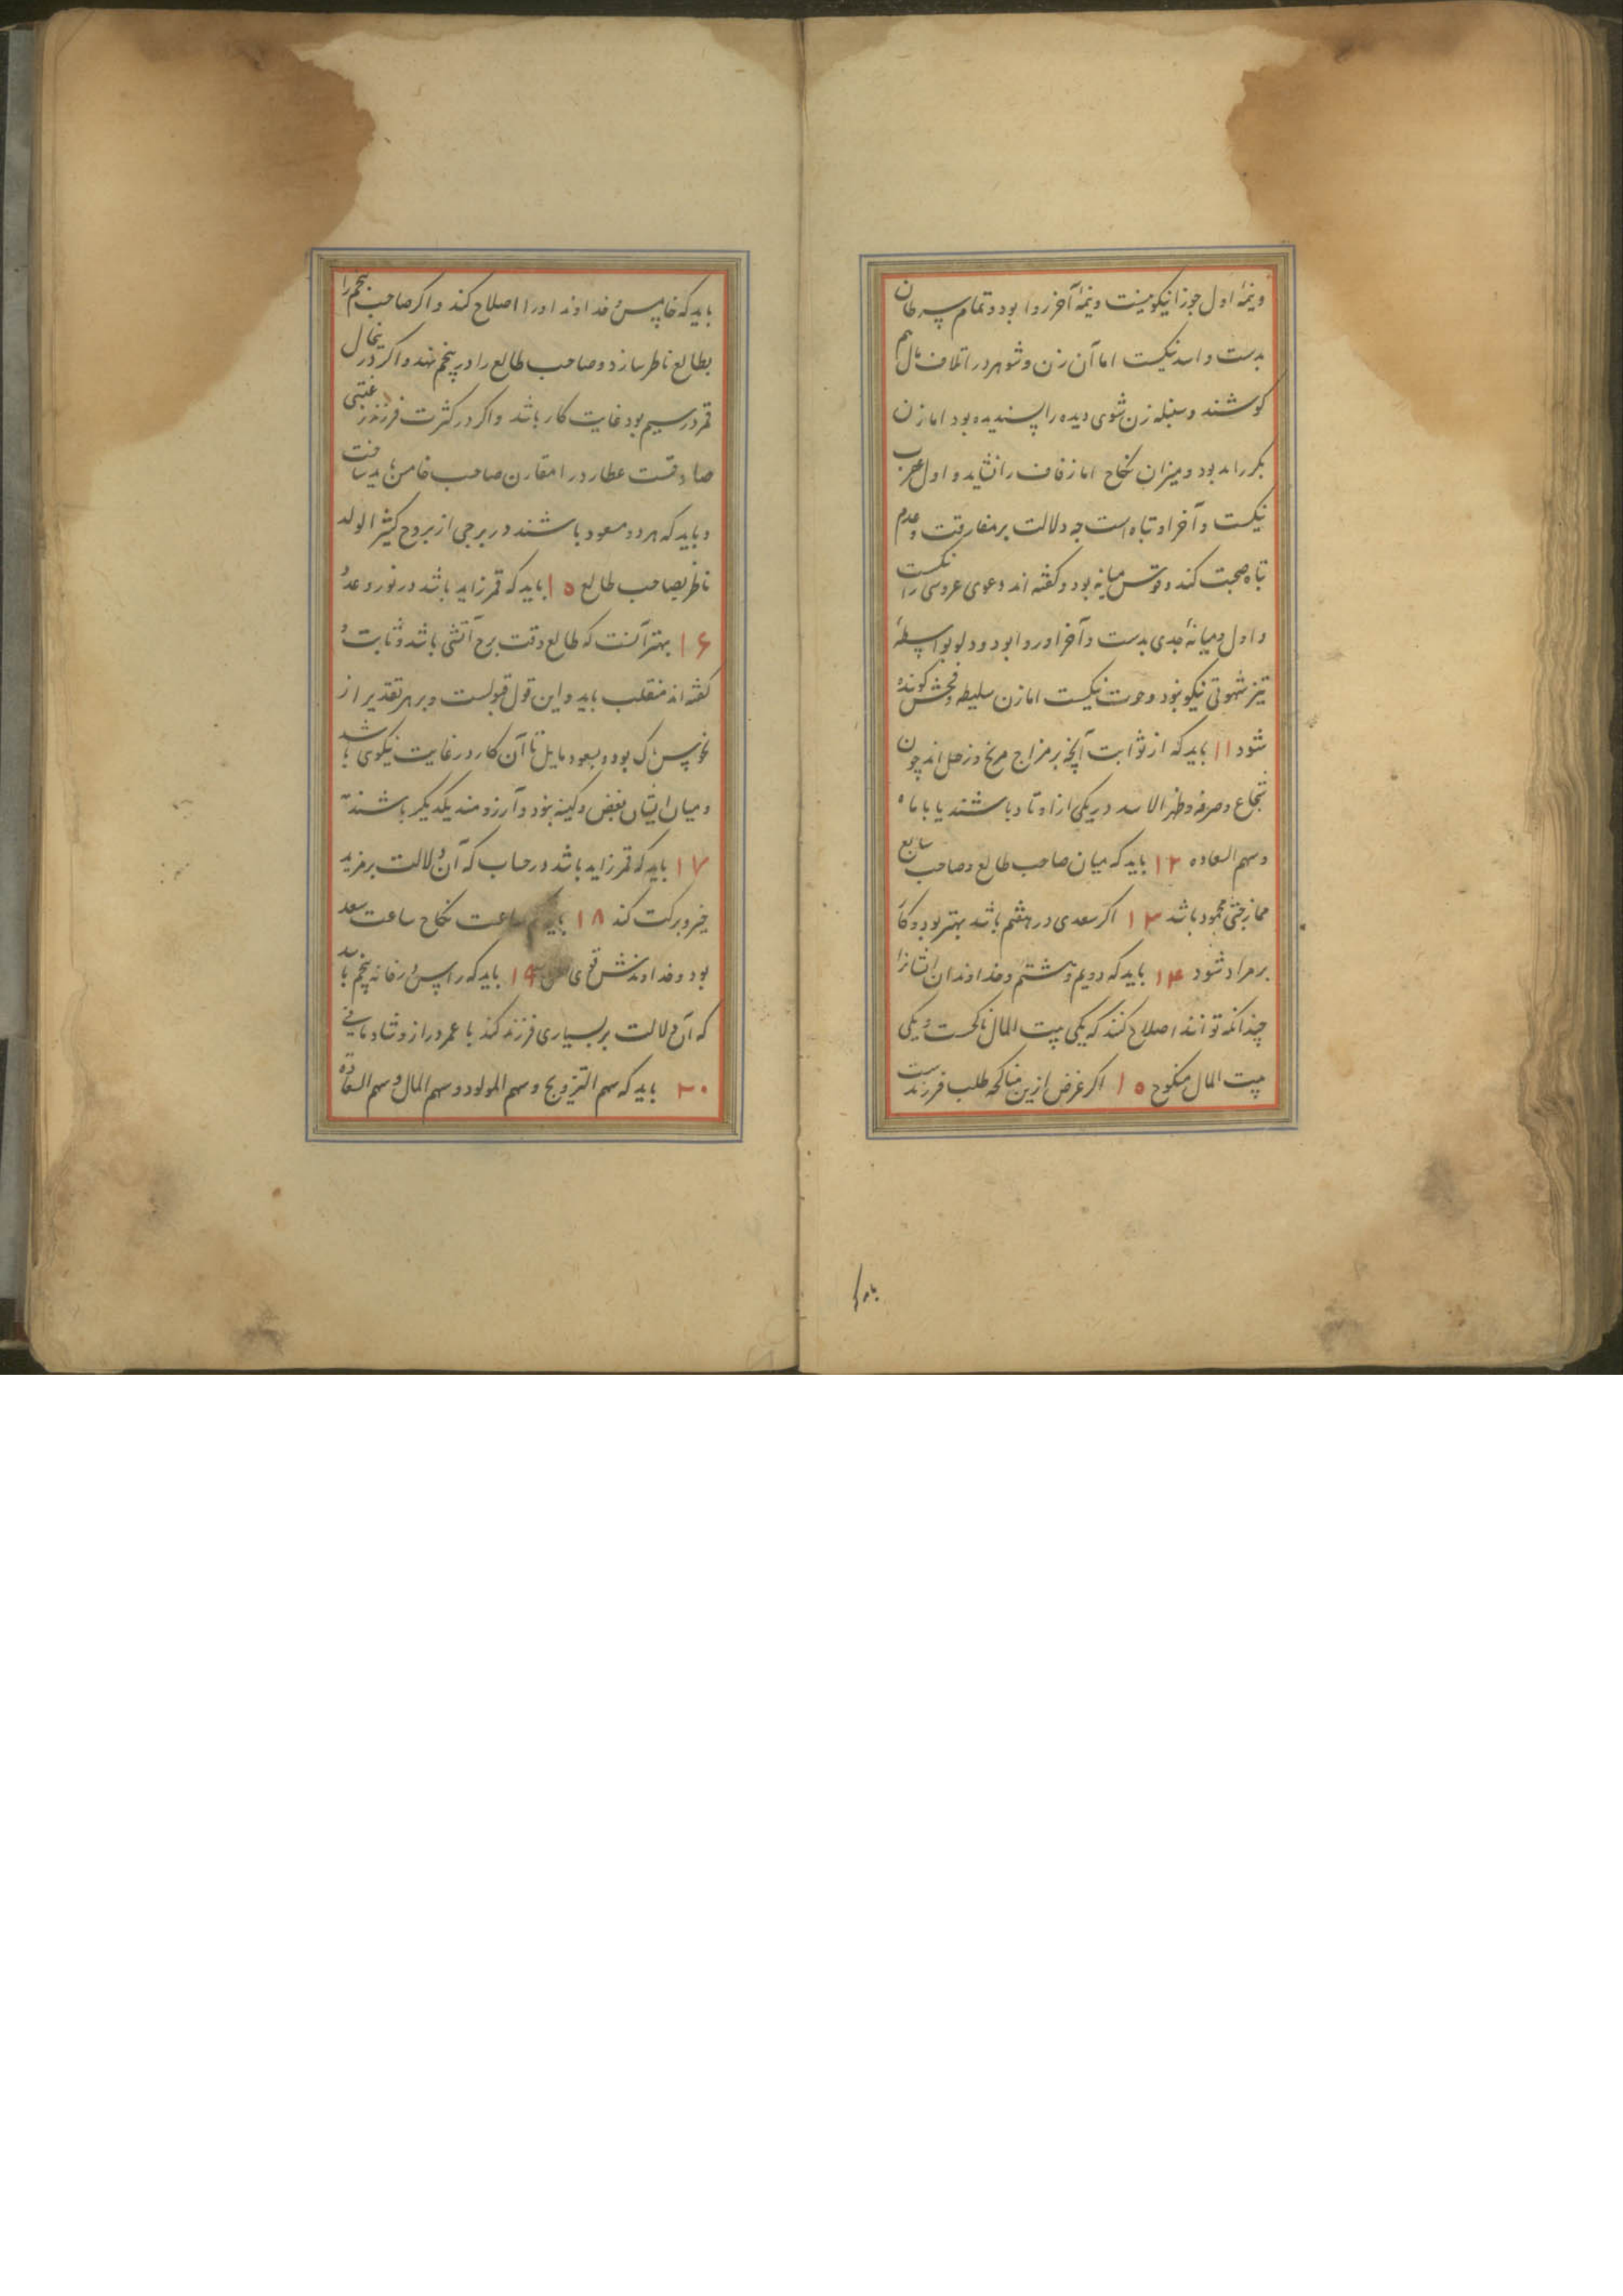 ونیمهٔ اول جوزا نیکو نیست ونیمهٔ آخر روا بود وتمام سرطان
بدست واسد نیکست اما آن زن وشوهر در اتلاف مال هم
کوشند وسنبله زن شوی دیده را پسندیده بود اما زن
بکر را بد بود ومیزان نکاح اما زفاف را نشاید واول عقرب
نیکست وآخر او تباه است چه دلالت بر مفارقت وعدم
تباه صحبت کند وقوس میانه بود وکفته اند دعوی عروسی را نیکست
واول ومیانهٔ جدی بدست وآخر او روا بود ودلو بواسطهٔ
تیز شهوتی نیکو نبود وحوت نیکست اما زن سلیطه وفحش کوینده
شود ۱۱ باید که از ثوابت آنچه بر مزاج مریخ وزحل اند چون
شجاع وصرفه وظهر الاسد در یکی از اوتاد باشند یا با ماه
وسهم السعاده ۱۲ باید که میان صاحب طالع وصاحب سابع
ممازجتی محمود باشد ۱۳ اکر سعدی در هفتم باشد بهتر بود وکار
بر مراد شود ۱۴ باید که دویم وهشتم وخداوندان ایشانرا
چندانکه توانند اصلاح کنند که یکی بیت المال ناکحست ویکی
بیت المال منکوح ۱۵ اکر غرض ازین مناکحه طلب فرزندست
باید
باید که خامس وخداوند او را اصلاح کند واکر صاحب پنجم را
بطالع ناظر سازد وصاحب طالع را در پنجم نهد واکر در نیحال
قمر در سیم بود غایت کار باشد واکر در کثرت فرزند رغبتی
صادقست عطارد را مقارن صاحب خامس باید ساخت
وباید که هر دو مسعود باشند در برجی از بروج کثیر الولد
ناظر بصاحب طالع ۱۵ باید که قمر زاید باشد در نور وعدد
۱۶ بهتر آنست که طالع وقت برج آتشی باشد وثابت و
کفته اند منقلب باید واین قول قبولست وبر هر تقدیر از
نحوس پاک بود وبسعود مایل تا آن کار در غایت نیکوی باشد
ومیان ایشان بغض وکینه نبود وآرزومند یکدیکر باشند
۱۷ باید که قمر زاید باشد در حساب که آن دلالت بر مزید
خیر وبرکت کند ۱۸ باید ساعت نکاح ساعت سعد
بود وخداوندش قوی ۱۹ باید که راس در خانه پنجم باشد
که آن دلالت بر بسیاری فرزند کند با عمر دراز وشادمانی
۲۰ باید که سهم التزویج وسهم المولود وسهم المال وسهم السعاده